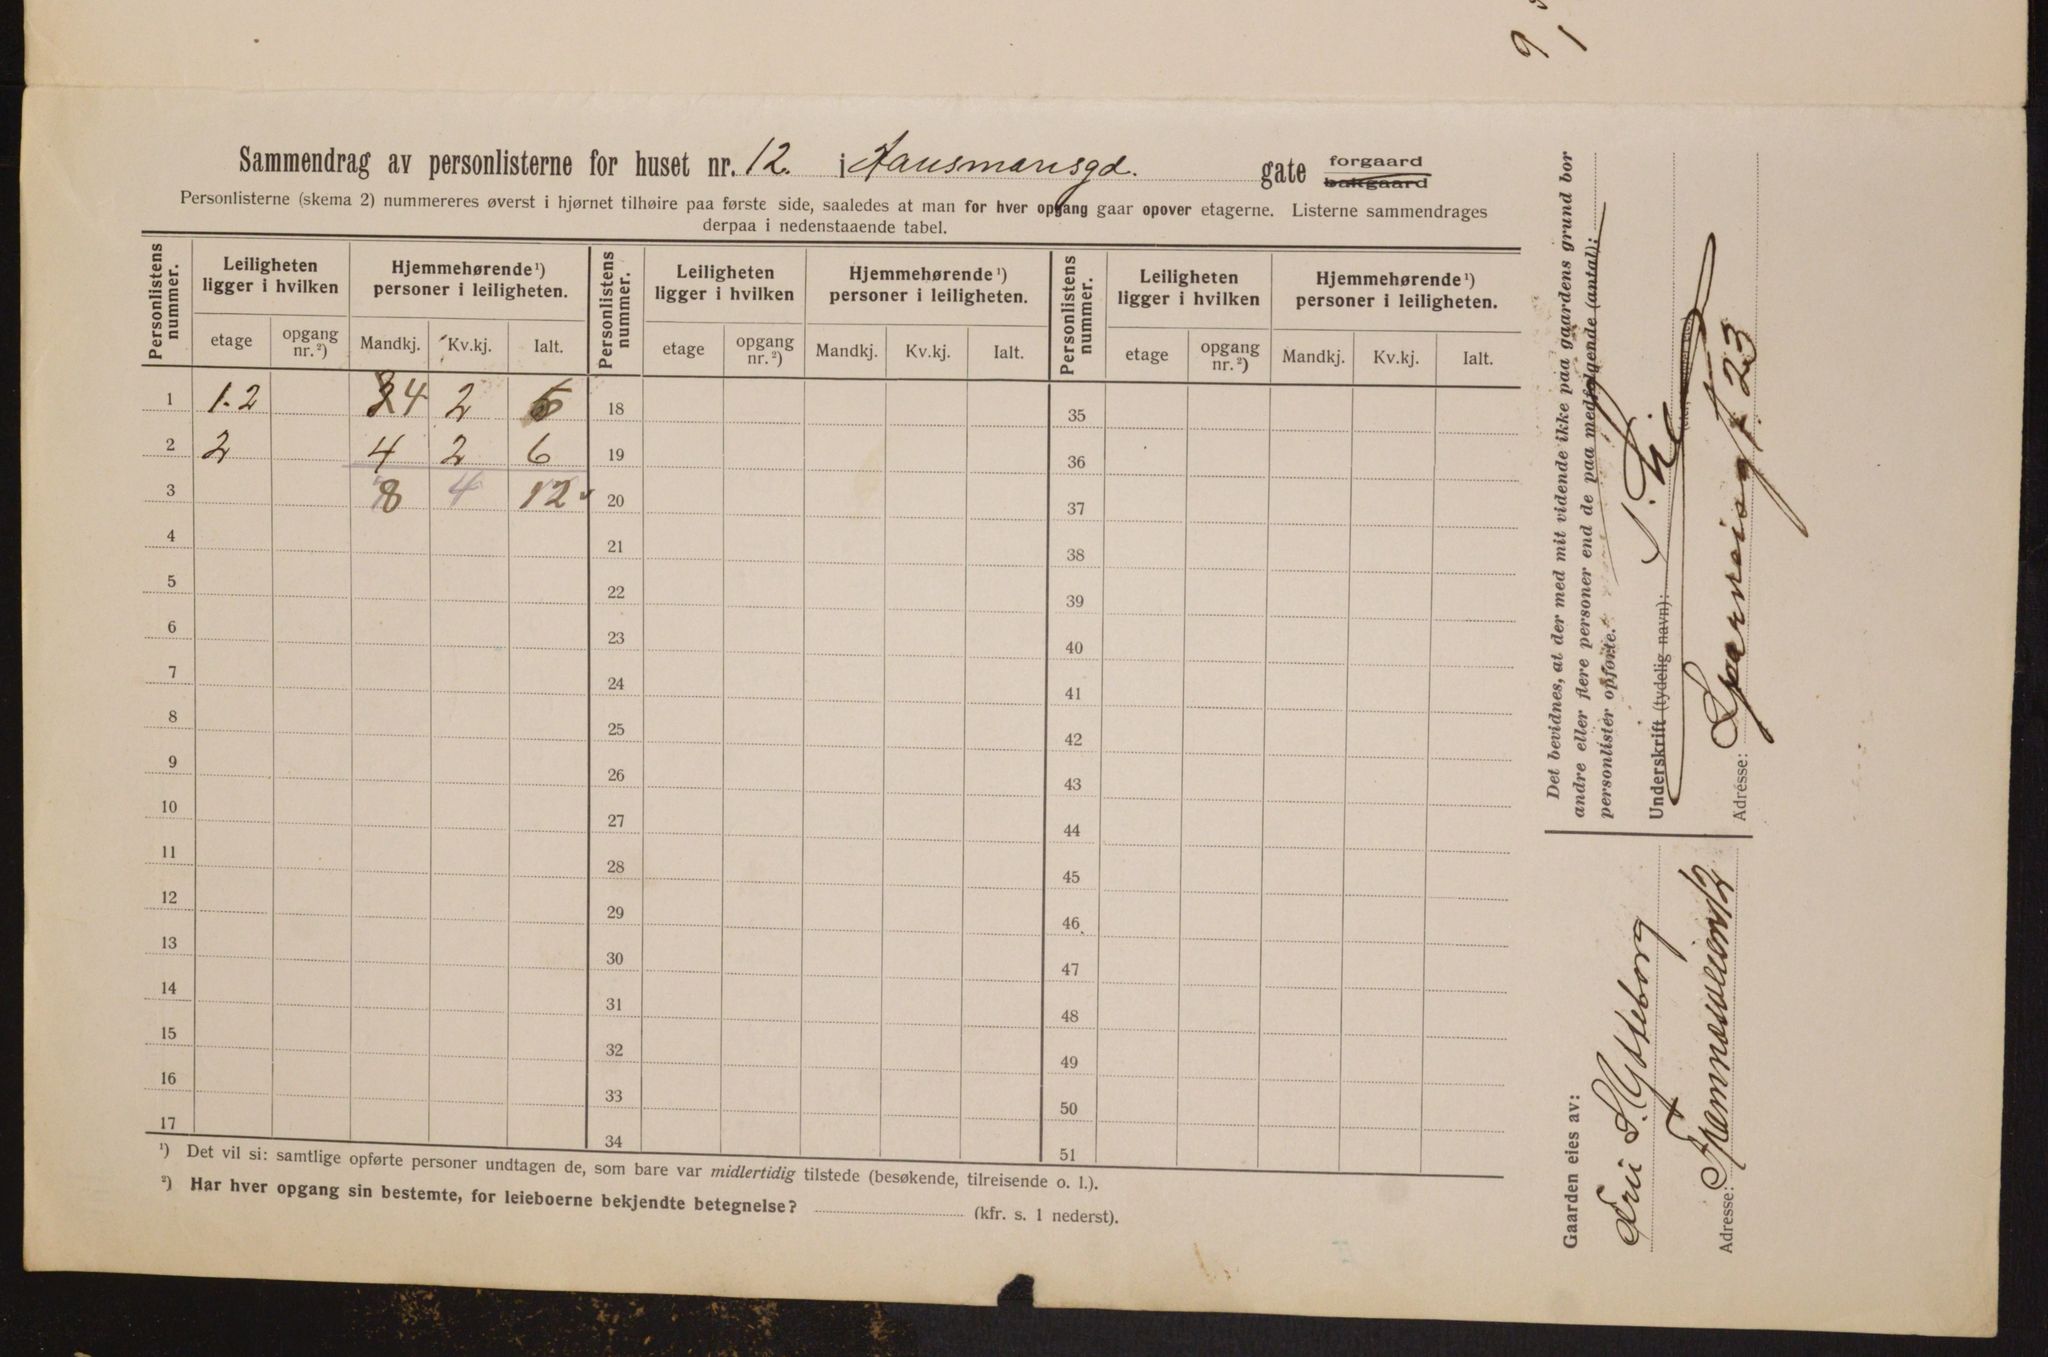 Sammendrag av personlisterne for huset nr. 12. i Hausmansgd. gate forgaard bakgaard
Personlisterne (skema 2) nummereres øverst i hjørnet tilhøire paa første side, saaledes at man for hver opgang gaar opover etagerne. Listerne sammendrages
derpaa i nedenstaaende tabel.
Personlistens nummer. Leiligheten ligger i hvilken Hjemmehørende¹) personer i leiligheten. Personlistens nummer. Leiligheten ligger i hvilken Hjemmehørende¹) personer i leiligheten. Personlistens nummer. Leiligheten ligger i hvilken Hjemmehørende¹) personer i leiligheten.
etage opgang nr.²) Mandkj. Kv.kj. Ialt. etage opgang nr.²) Mandkj. Kv.kj. Ialt. etage opgang nr.²) Mandkj. Kv.kj. Ialt.
1 1.2 4 2 6 18 35
2 2 4 2 6 19 36
3 8 4 12 20 37
4 21 38
5 22 39
6 23 40
7 24 41
8 25 42
9 26 43
10 27 44
11 28 45
12 29 46
13 30 47
14 31 48
15 32 49
16 33 50
17 34 51
¹) Det vil si: samtlige opførte personer undtagen de, som bare var midlertidig tilstede (besøkende, tilreisende o. l.).
²) Har hver opgang sin bestemte, for leieboerne bekjendte betegnelse? (kfr. s. 1 nederst).
Det bevidnes, at der med mit vidende ikke paa gaardens grund bor
andre eller flere personer end de paa medfølgende (antal):
personlister opførte.
Underskrift (tydelig navn):
Adresse: 23
Gaarden eies av:
S. Ytteborg
Adresse:
9
1